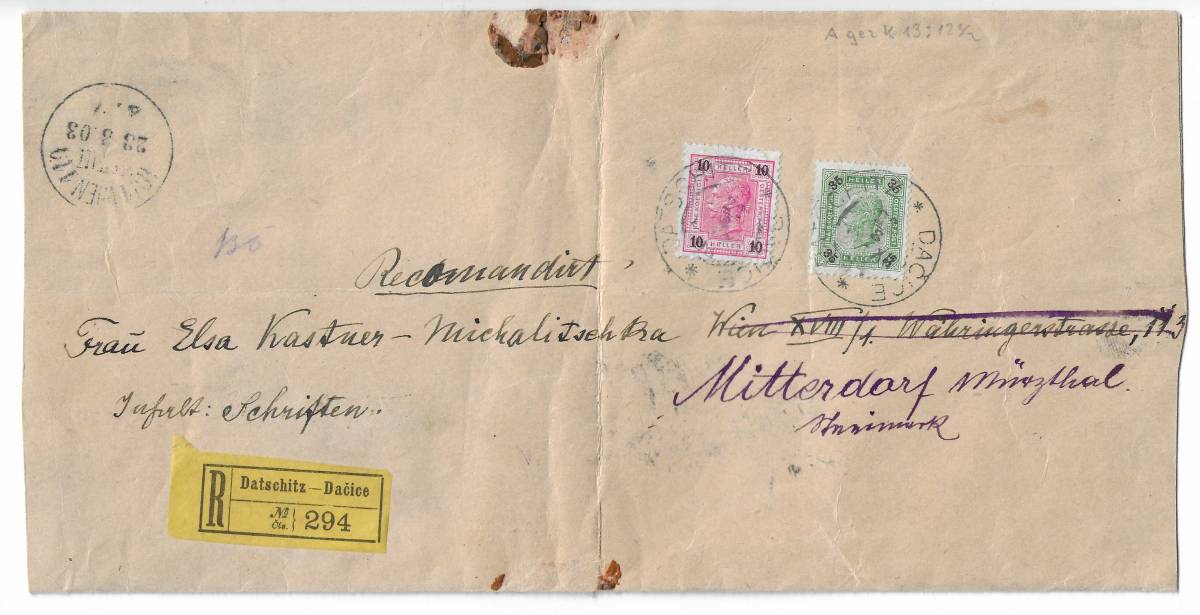 A gez K 13:12½
28 8 03
130
10 10
HELLER
10 HELLER 10
35 35
HELLER
35 35
DAČICE
Recomandirt,
Frau Elsa Kastner-Michalitschka Wien XVIII/1. Währingerstrasse, 113
Mitterdorf Mürzthal.
Steiermark
Inhalt: Schriften.
R
Datschitz—Dačice
№
čis. 294